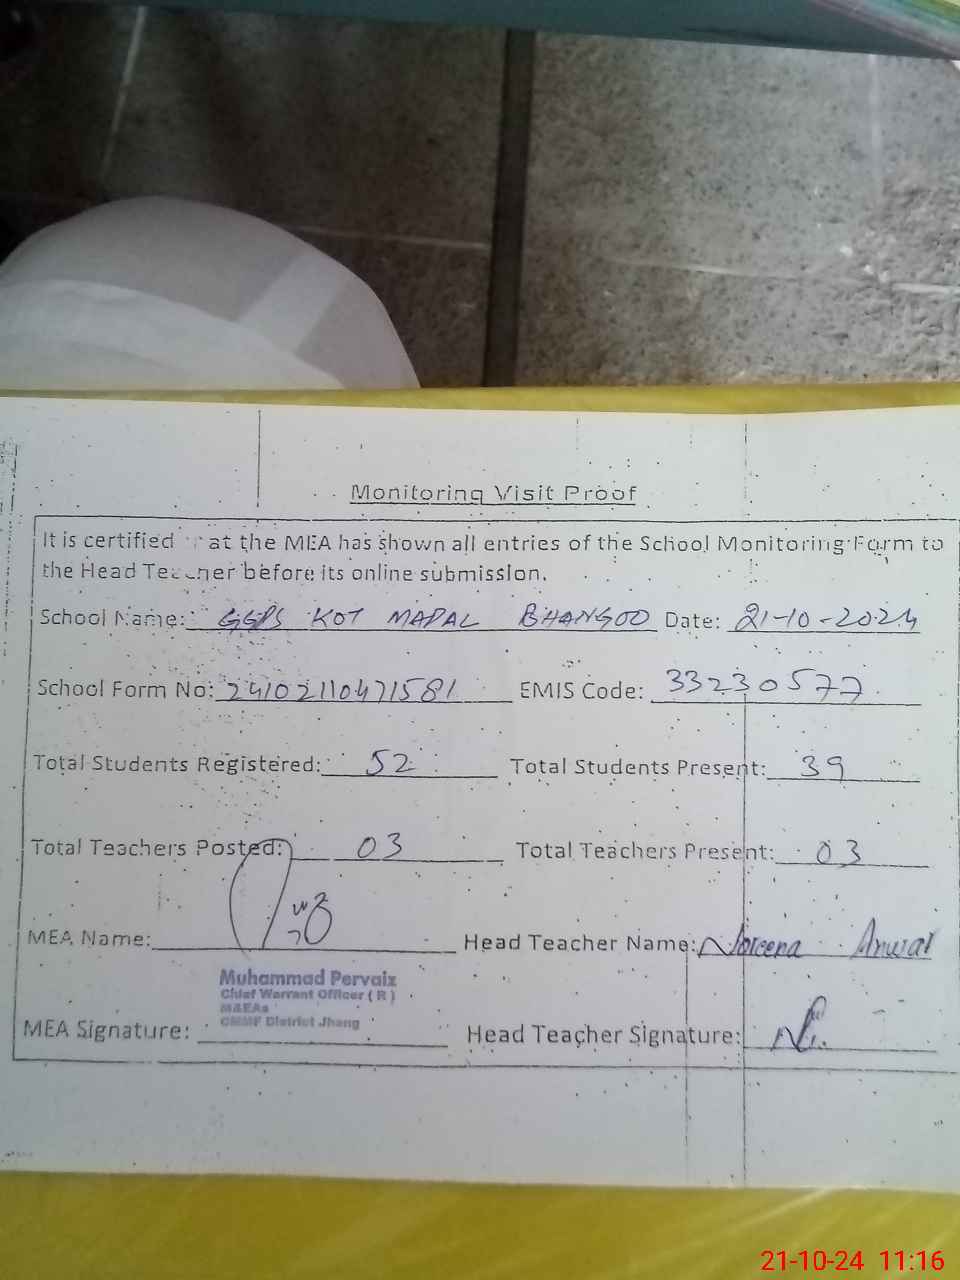 Monitoring Visit Proof
It is certified that the MEA has shown all entries of the School Monitoring Form to
the Head Teacher before its online submission.
School Name: GGPS KOT MAPAL BHANGOO Date: 21-10-2024
School Form No: 24102110471581 EMIS Code: 33230577
Total Students Registered: 52 Total Students Present: 39
Total Teachers Posted: 03 Total Teachers Present: 03
MEA Name: Head Teacher Name: Noreena Anwar
Muhammad Pervaiz
Chief Warrant Officer ( R )
M&EAs
CMMF District Jhang
MEA Signature: Head Teacher Signature:
21-10-24 11:16